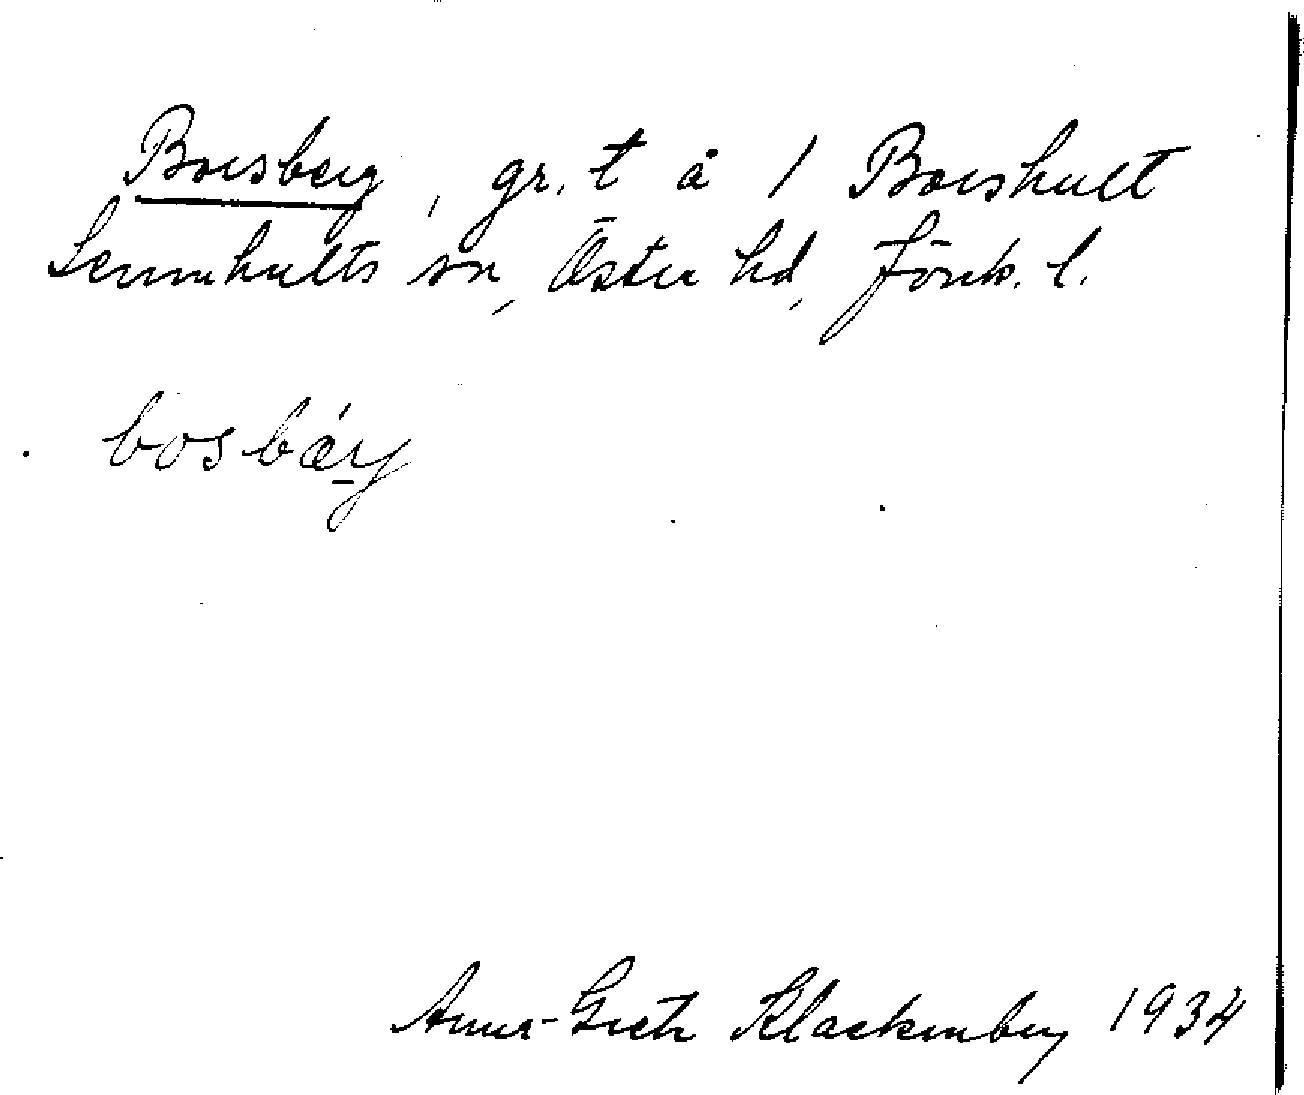 Borsberg, gr. t å 1 Borshult
Lemnhults sn, Östra hd, Jönk. l.
bosbæry
Anna-Greta Klackenberg 1934